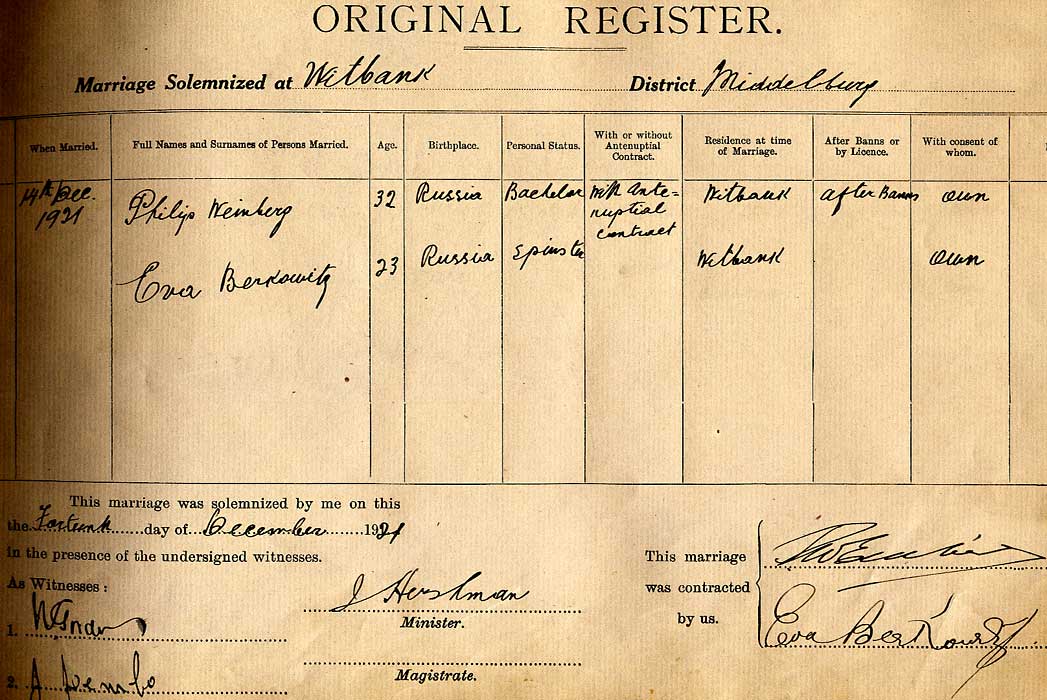 ORIGINAL REGISTER.
Marriage Solemnized at Witbank District Middelburg
When Married. Full Names and Surnames of Persons Married. Age. Birthplace. Personal Status. With or without Antenuptial Contract. Residence at time of Marriage. After Banns or by Licence. With consent of whom.
14th Dec. 1921 Philip Weinberg 32 Russia Bachelor With Ante=nuptial contract Witbank after Banns own
Eva Berkowitz 23 Russia Spinster Witbank own
This marriage was solemnized by me on this
the day of December 1921
in the presence of the undersigned witnesses.
As Witnesses :
1.
2.
J Hershman
Minister.
Magistrate.
This marriage
was contracted
by us.
Eva Berkowitz